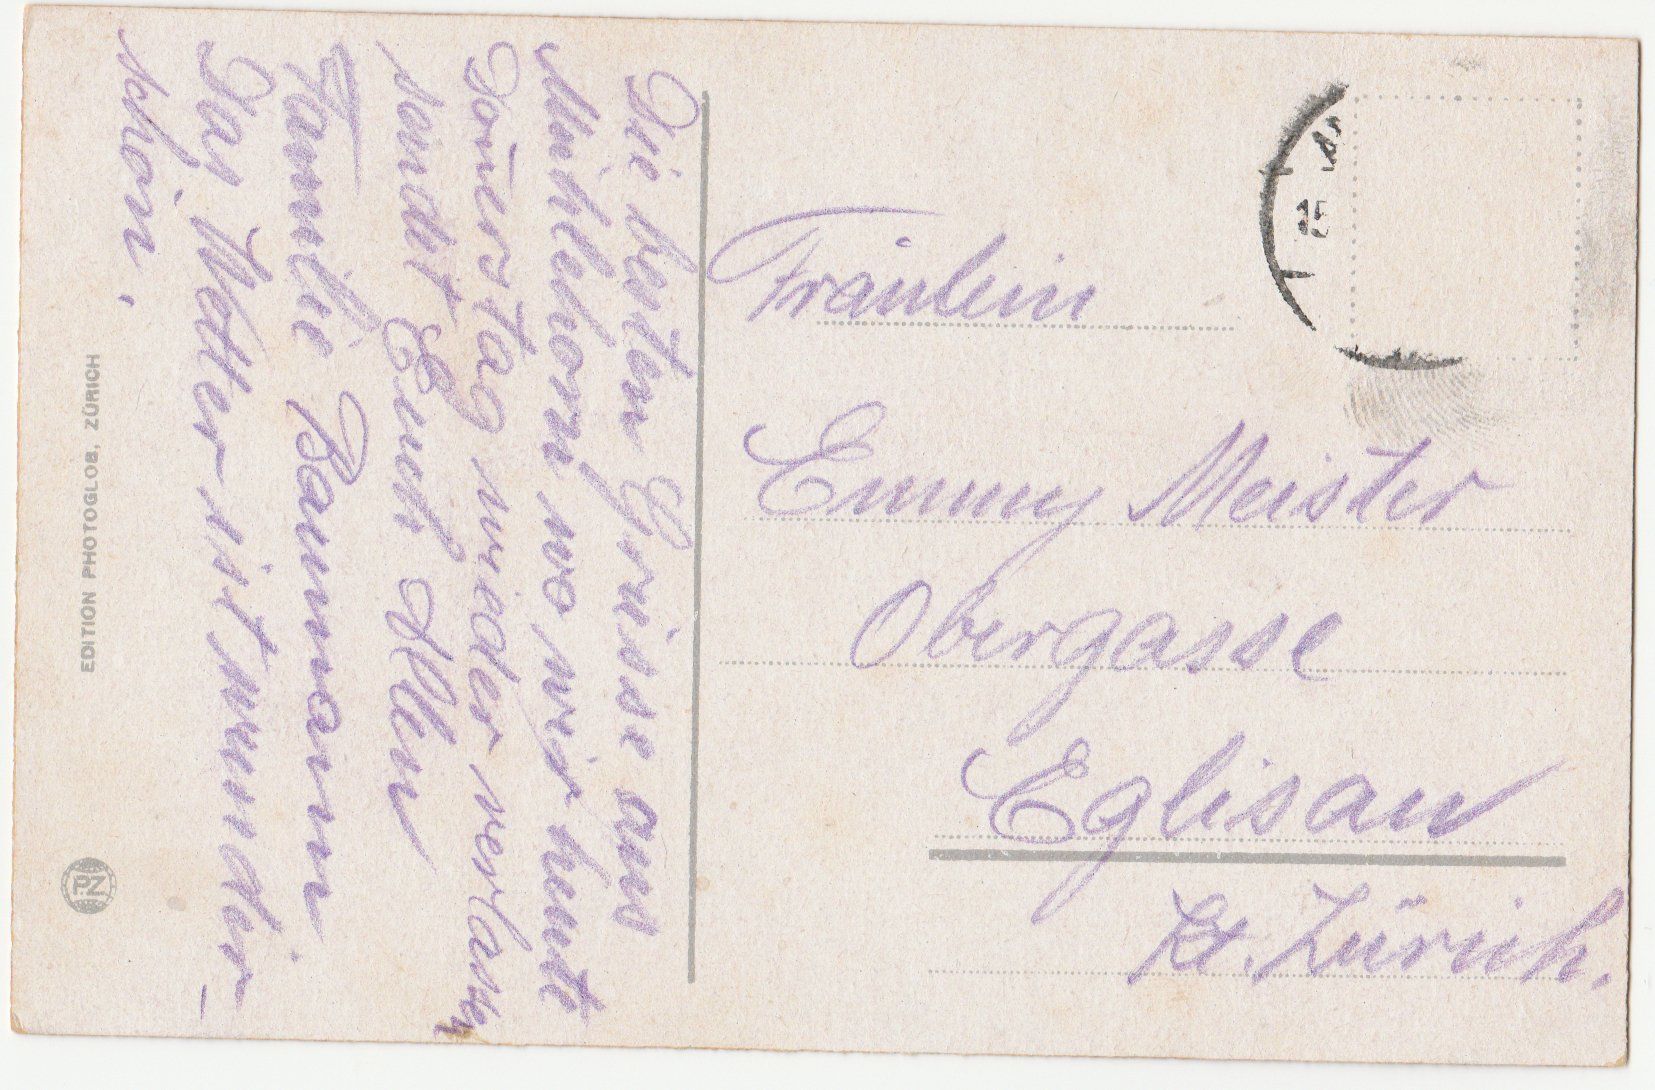 Die besten Grüsse aus
Mühlehorn wo wir heute
Donerstag wieder verlassen
sendet Euch Allen
Familie Baumann
Das Wetter ist wunder-
schön.
EDITION PHOTOGLOB, ZÜRICH
PZ
15
Fräulein
Emmy Meister
Obergasse
Eglisau
Kt. Zürich.